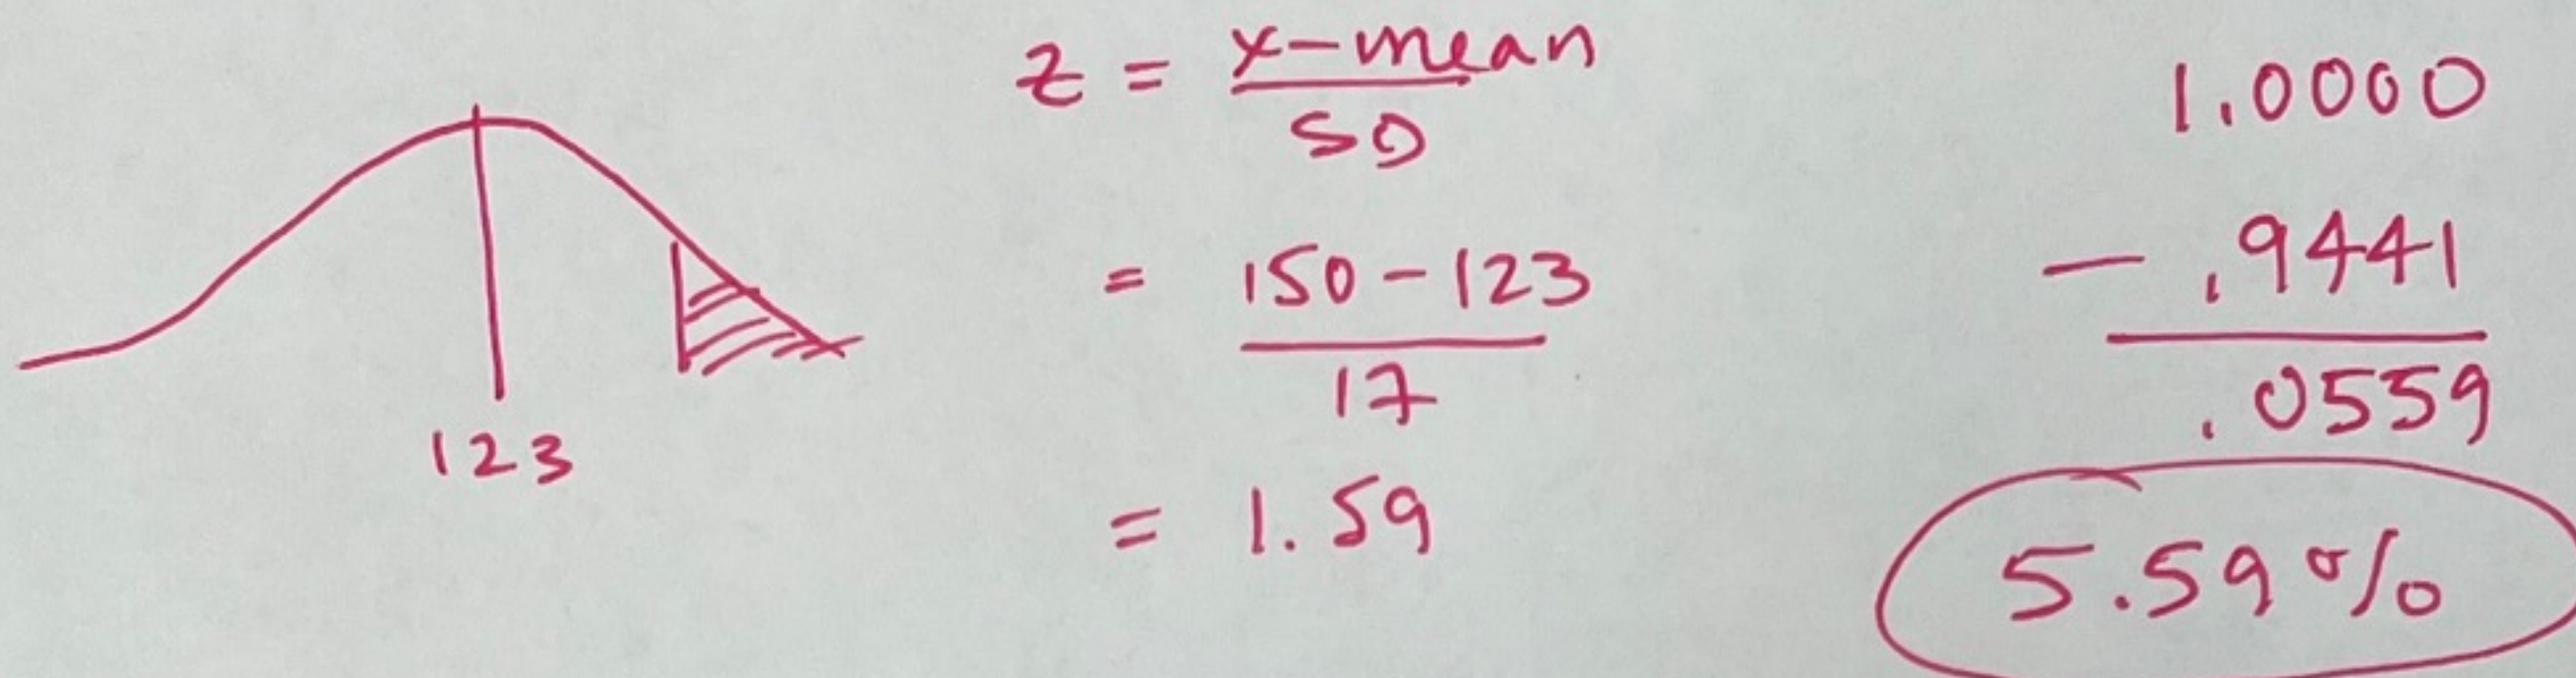 123
z = x-mean
SD
= 150-123
17
= 1.59
1.0000
- .9441
.0559
5.59%